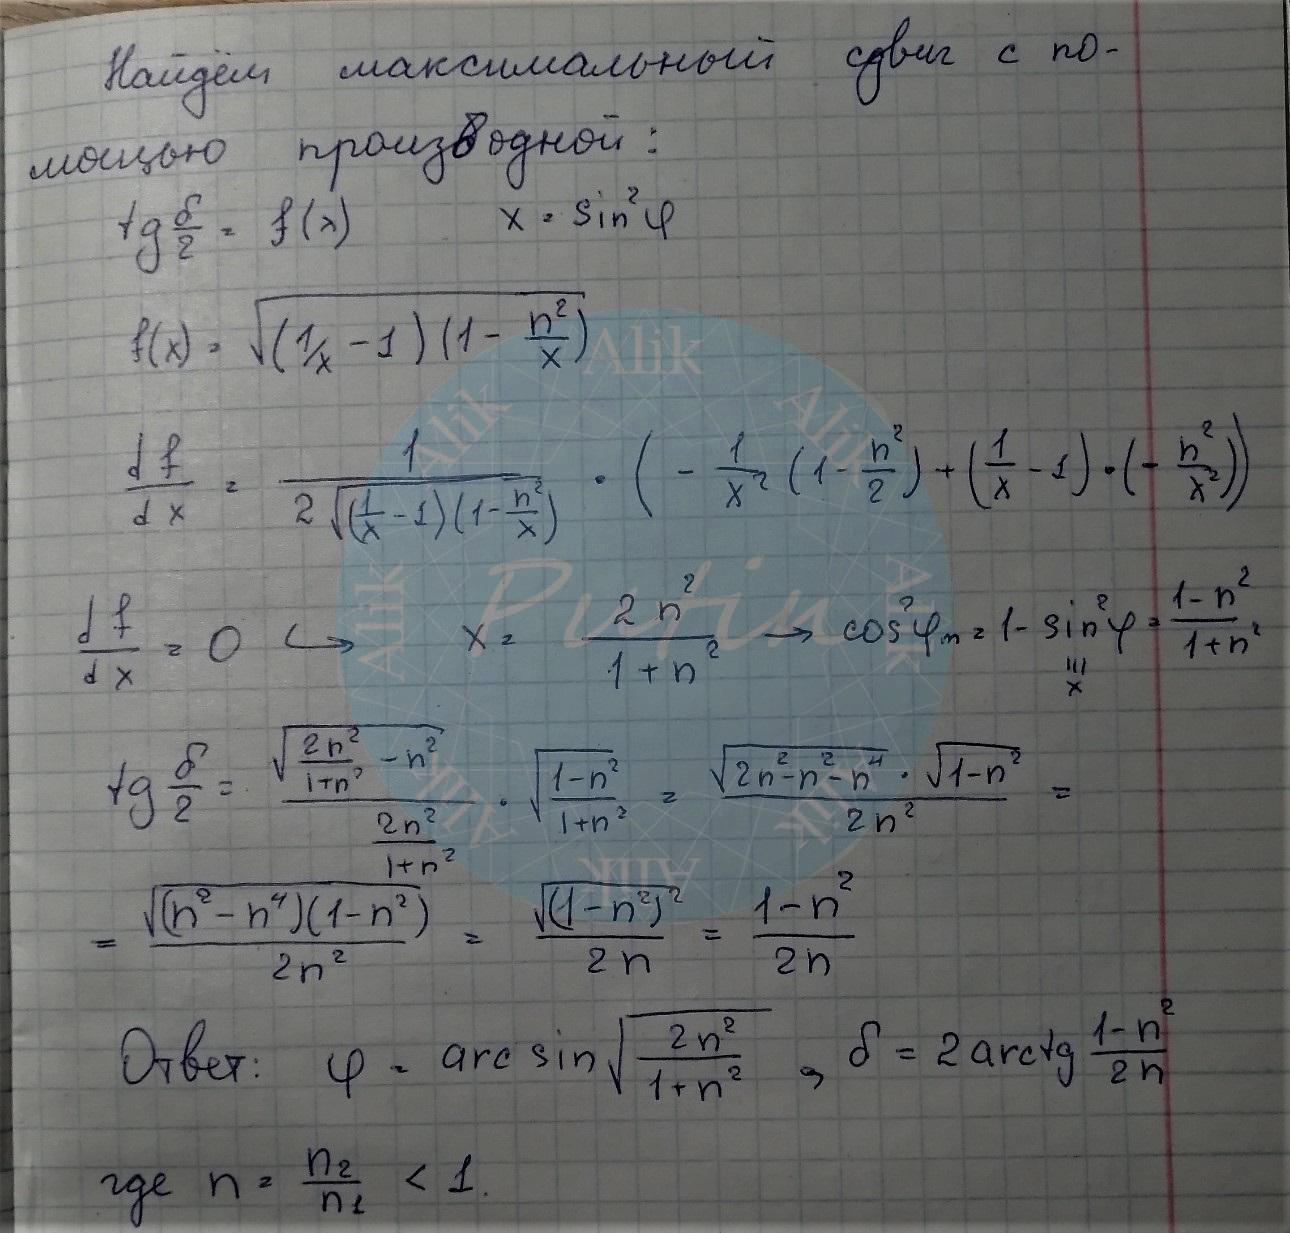 Найдём максимальный сдвиг с по-
мощью производной:
tg δ/2 = f(x) x = sin²φ
f(x) = √((1/x - 1)(1 - n²/x))
df/dx = 1/(2√((1/x - 1)(1 - n²/x))) · (- 1/x² (1 - n²/2) + (1/x - 1)·(- n²/x²))
df/dx = 0 ↪ x = 2n²/(1+n²) → cos²φₘ = 1 - sin²φ = (1-n²)/(1+n²)
≡ x
tg δ/2 = √(2n²/(1+n²) - n²)/(2n²/(1+n²)) · √((1-n²)/(1+n²)) = (√(2n²-n²-n⁴) · √(1-n²))/(2n²) =
= √((n²-n⁴)(1-n²))/(2n²) = √((1-n²)²)/(2n) = (1-n²)/(2n)
Ответ: φ = arcsin √(2n²/(1+n²)), δ = 2arctg (1-n²)/(2n)
где n = n₂/n₁ < 1.
Alik
Alik
Alik
Alik
Alik
Putin
Alik
Alik
Alik